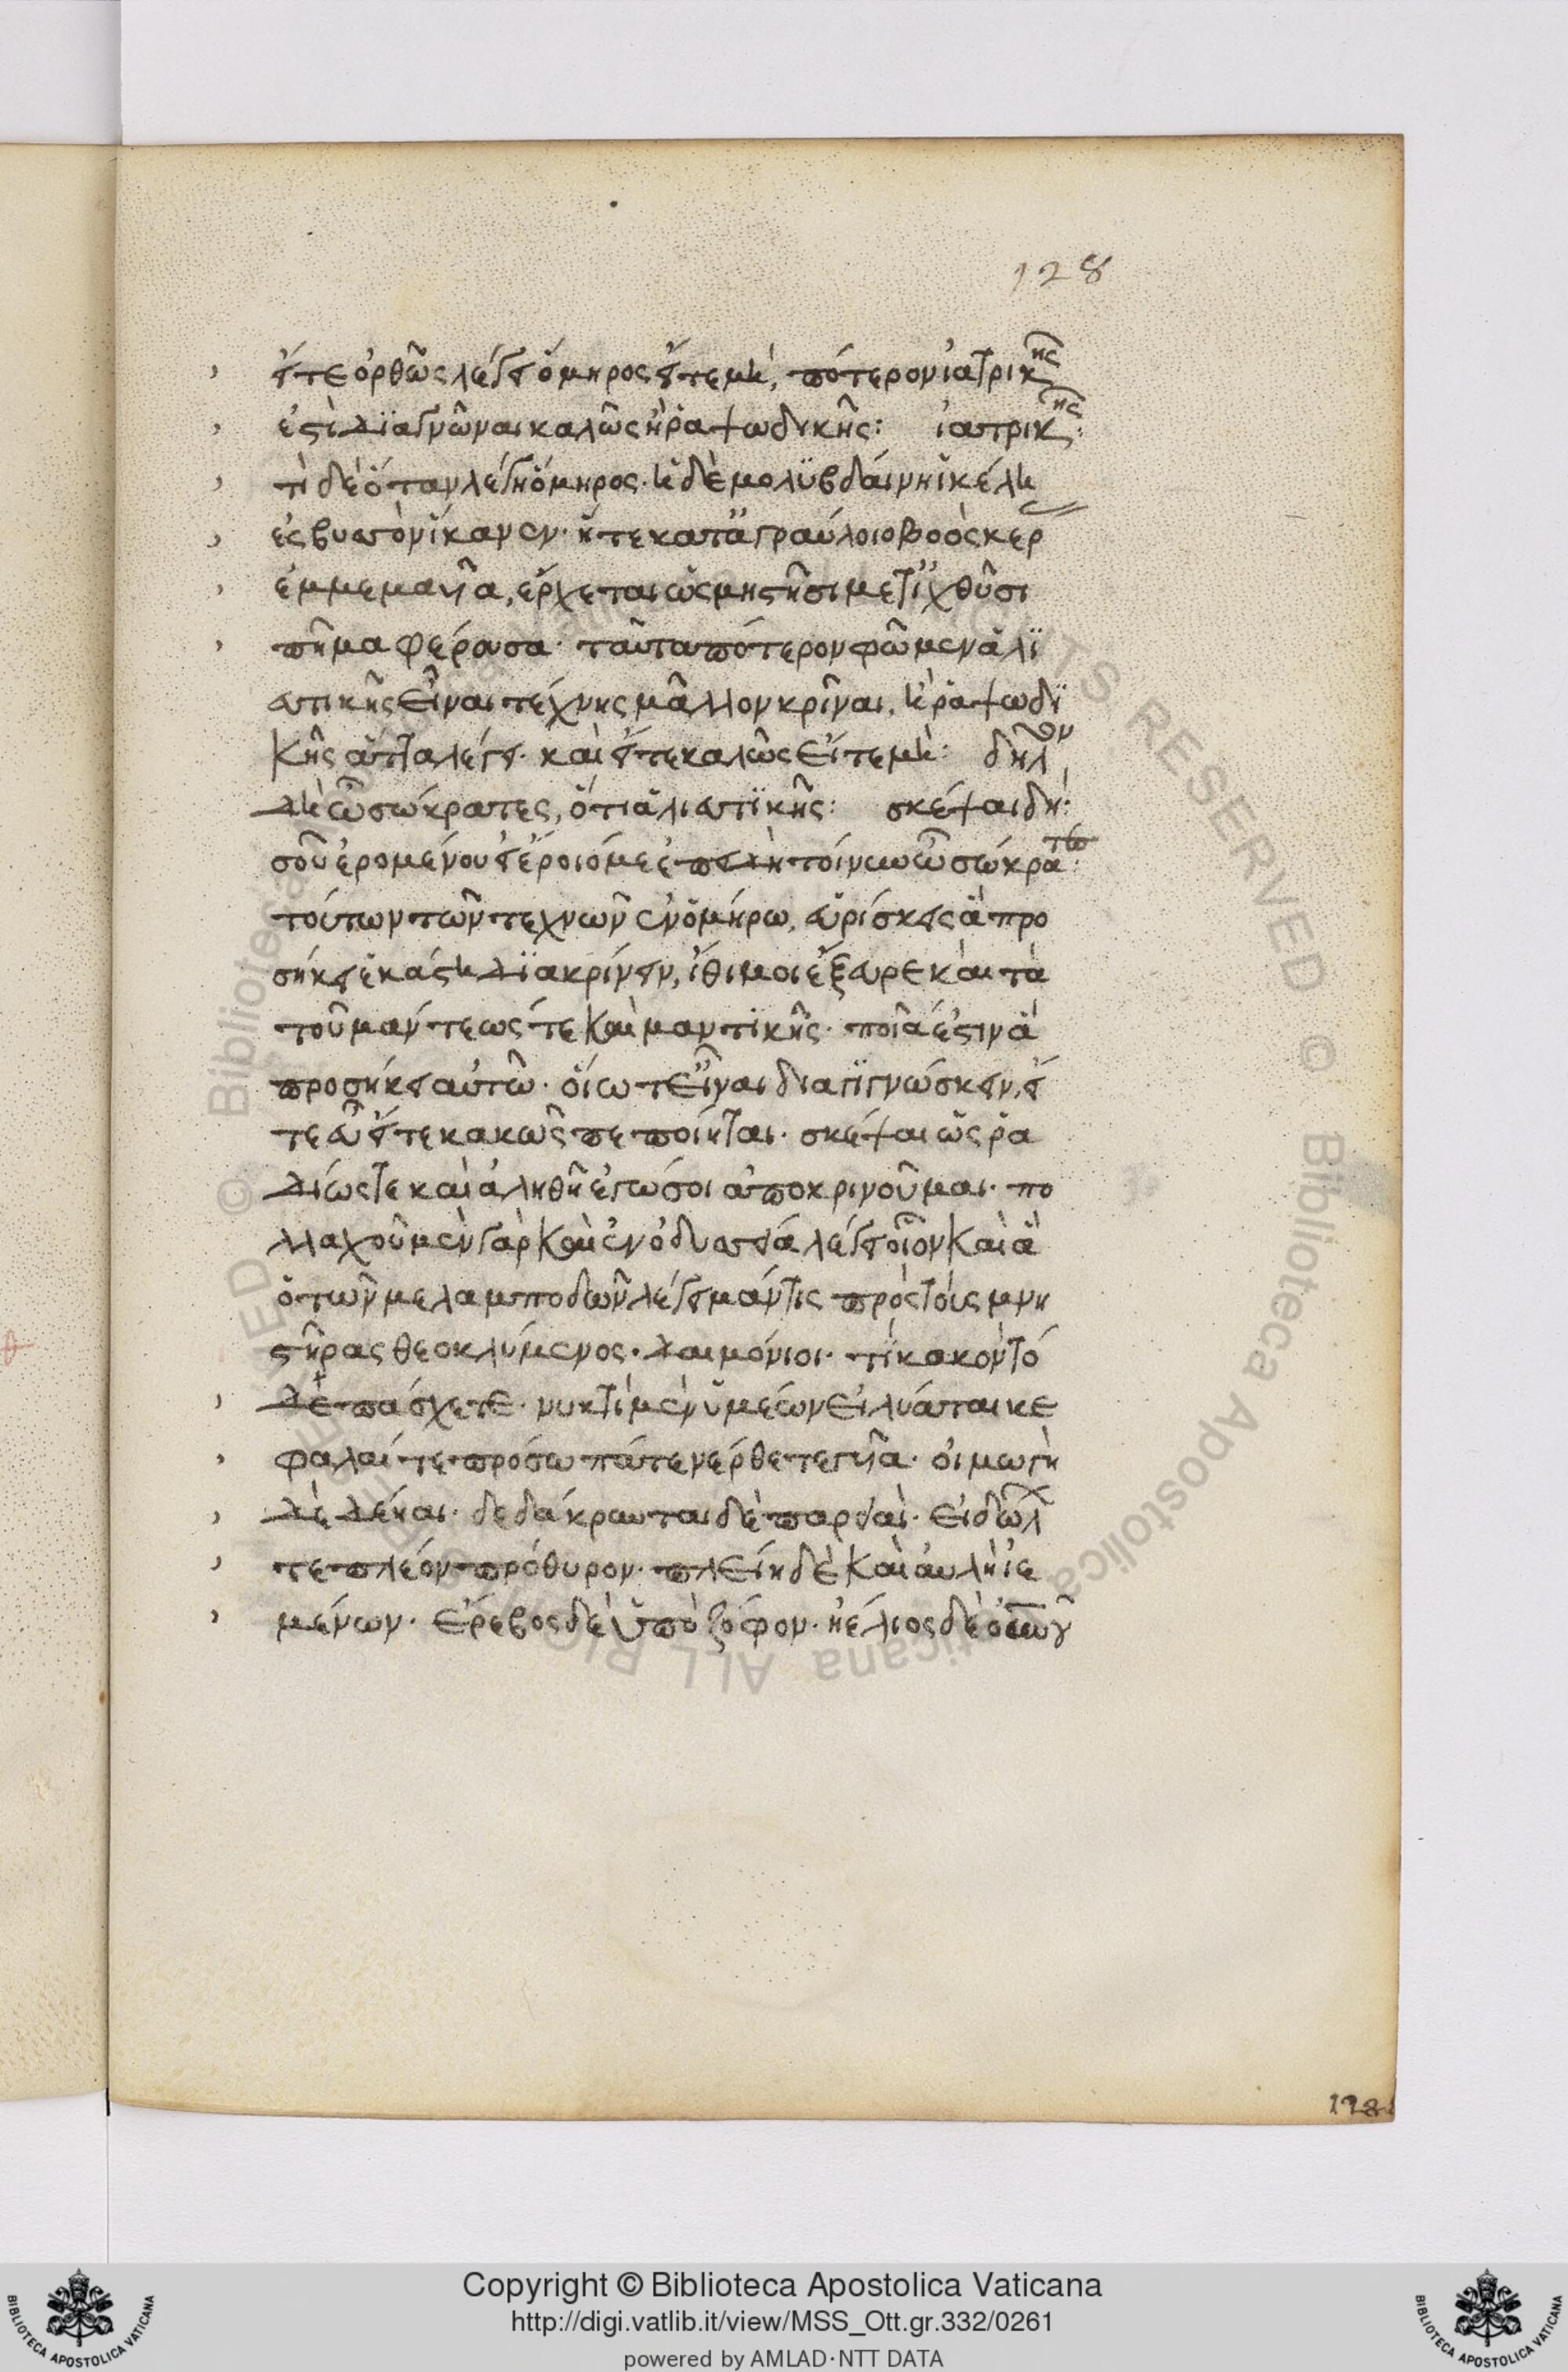 128
εἴτε ὀρθῶς λέγει ὅμηρος εἴτε μὴ, πότερον ἰατρικῆς
ἐστὶ διαγνῶναι καλῶς ἢ ῥαψωδικῆς: ἰατρικῆς:
τὶ δὲ ὅταν λέγη ὅμηρος· ἡ δὲ μολυβδαίνη ἰκέλη
ἐς βυσσὸν ἵκανεν· ἥ τε κατ' ἀγραύλοιο βοὸς κέρ
ἐμμεμαυῖα, ἔρχεται ὠμηστῆσι μετ' ἰχθῦσι
πῆμα φέρουσα· ταῦτα πότερον φῶμεν ἁλι
ευτικῆς εἶναι τέχνης μᾶλλον κρῖναι, ἢ ῥαψωδι
κῆς ἅττα λέγει· καὶ εἴτε καλῶς εἴτε μή: δῆλον
δὴ ὦ σώκρατες, ὅτι ἁλιευτικῆς: σκέψαι δή:
σοῦ ἐρομένου εἰ ἔροιό με ἐπειδὴ τοίνυν ὦ σώκρατες:
τούτων τῶν τεχνῶν ἐν ὁμήρω, εὑρίσκεις ἃ προ
σήκει ἑκάστη διακρίνειν, ἴθι μοι ἔξευρε καὶ τὰ
τοῦ μάντεώς τε καὶ μαντικῆς· ποῖά ἐστιν ἃ
προσήκει αὐτῶ· οἵω τ' εἶναι διαγιγνώσκειν, εἴ
τε εὖ εἴτε κακῶς πεποίηται· σκέψαι ὡς ῥα
δίως τε καὶ ἀληθῆ ἐγώ σοι ἀποκρινοῦμαι· πο
λλαχοῦ μὲν γὰρ καὶ ἐν ὀδυσσεία λέγει οἷον καὶ ἃ
ὁ τῶν μελαμποδῶν λέγει μάντις πρὸς τοὺς μνη
στῆρας θεοκλύμενος· δαιμόνιοι· τί κακὸν τό
δε πάσχετε· νυκτὶ μὲν ὑμέων εἰλύαται κε
φαλαί τε πρόσωπά τε νέρθε τε γυῖα· οἰμωγὴ
δὲ δέηαι· δεδάκρυνται δὲ παρειαί· εἰδώλ
τε πλέον πρόθυρον· πλείη δὲ καὶ αὐλὴ ἱε
μένων· ἔρεβος δὲ ὑπὸ ζόφον· ἠέλιος δὲ οὐρανοῦ
128
Copyright © Biblioteca Apostolica Vaticana
http://digi.vatlib.it/view/MSS_Ott.gr.332/0261
powered by AMLAD·NTT DATA